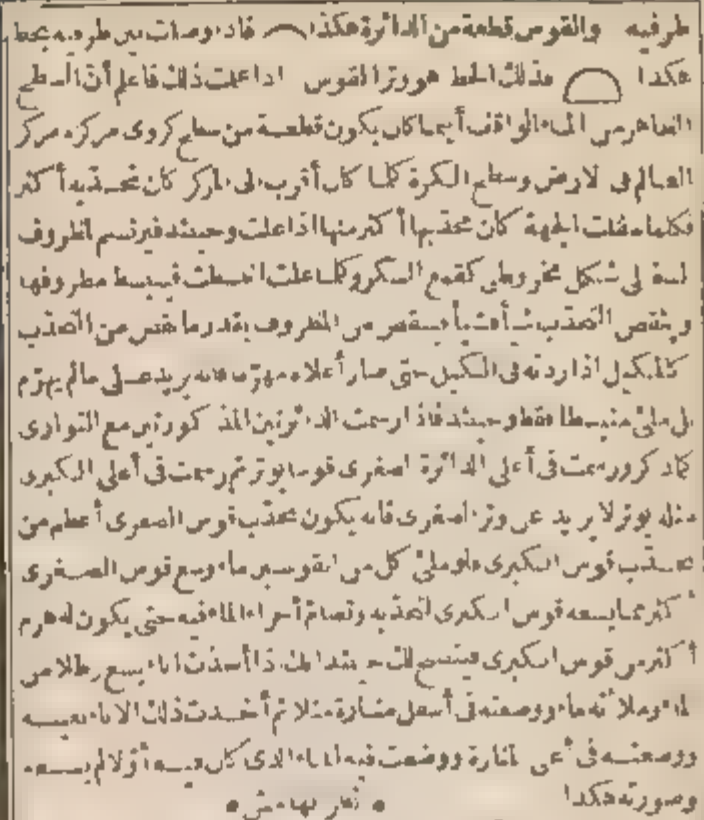 طرفيه والقوس قطعة من الدائرة هكذا فاذا وصلت بين طرفيه بخط
هكذا فذلك الخط هو وتر القوس اذا علمت ذلك فاعلم أن السطح
الظاهر من الماء الواقف أينما كان يكون قطعة من سطح كروى مركزه مركز
العالم فى الارض وسطح الكرة كلما كان أقرب الى المركز كان تحدّبه أكثر
فكلما سفلت الجهة كان تحدّبها أكثر منها اذا علت وحينئذ فيرتسم المظروف
الى شكل مخروطى كقمع السكر وكلما علت انبسطت فينبسط مظروفها
وينقص التحدّب شيأ فشيأ فينقص من المظروف بقدر ما نقص من التحدّب
كالمكيل اذا زدته فى الكيل حتى صار أعلاه مهرّما فانه يزيد على مالم يهرّم
بل ملئ منبسطا فقط وحينئذ فاذا رسمت الدائرتين المذكورتين مع التوازى
كما ذكر ورسمت فى أعلى الدائرة الصغرى قوسا بوتر ثم رسمت فى أعلى الكبرى
مثله بوتر لا يزيد عن وتر الصغرى فانه يكون تحدّب قوس الصغرى أعظم من
تحدّب قوس الكبرى فلو ملئ كل من القوسين ماء وسع قوس الصغرى
أكثر مما يسعه قوس الكبرى لتحدّبه وتضامّ أجزاء الماء فيه حتى يكون له هرم
أكثر من قوس الكبرى فيتضح لك حينئذ انك اذا أخذت اناء يسع رطلا من
الماء وملأته ماء ووضعته فى أسفل منارة مثلا ثم أخذت ذلك الاناء بعينه
ووضعته فى أعلى المنارة ووضعت فيه الماء الذى كان فيه أوّلا لم يسعه
وصورته هكذا انظر بهامش